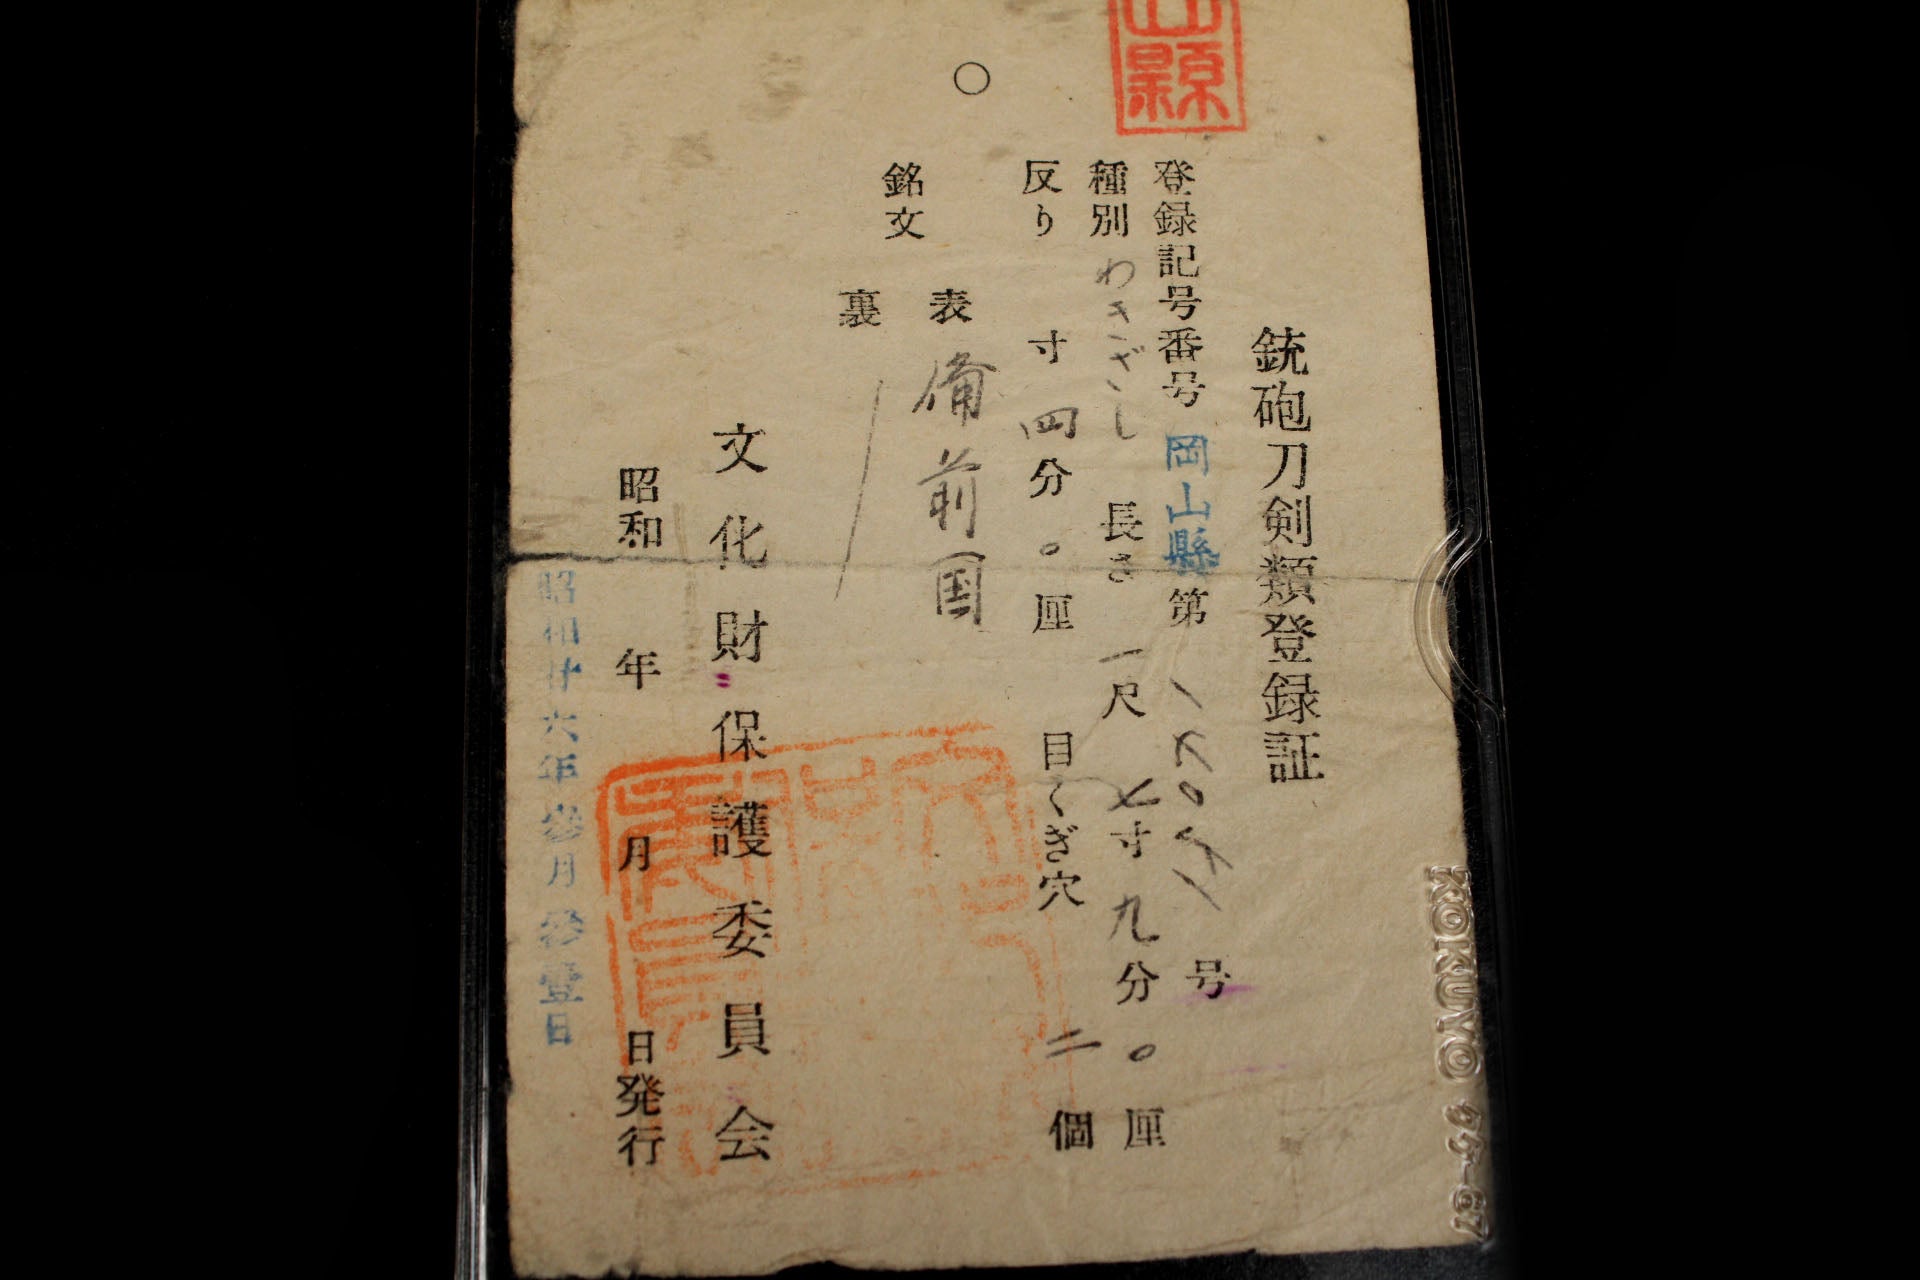 銃砲刀剣類登録証
登録記号番号 岡山縣 第 号
種別 わきざし 長さ 一尺 七寸 九分 〇厘
反り 寸 四分 〇厘 目くぎ穴 二個
銘文
表 備前国
裏
文化財保護委員会
昭和 年 月 日発行
昭和廿六年参月参壹日
山縣
KOKUYO